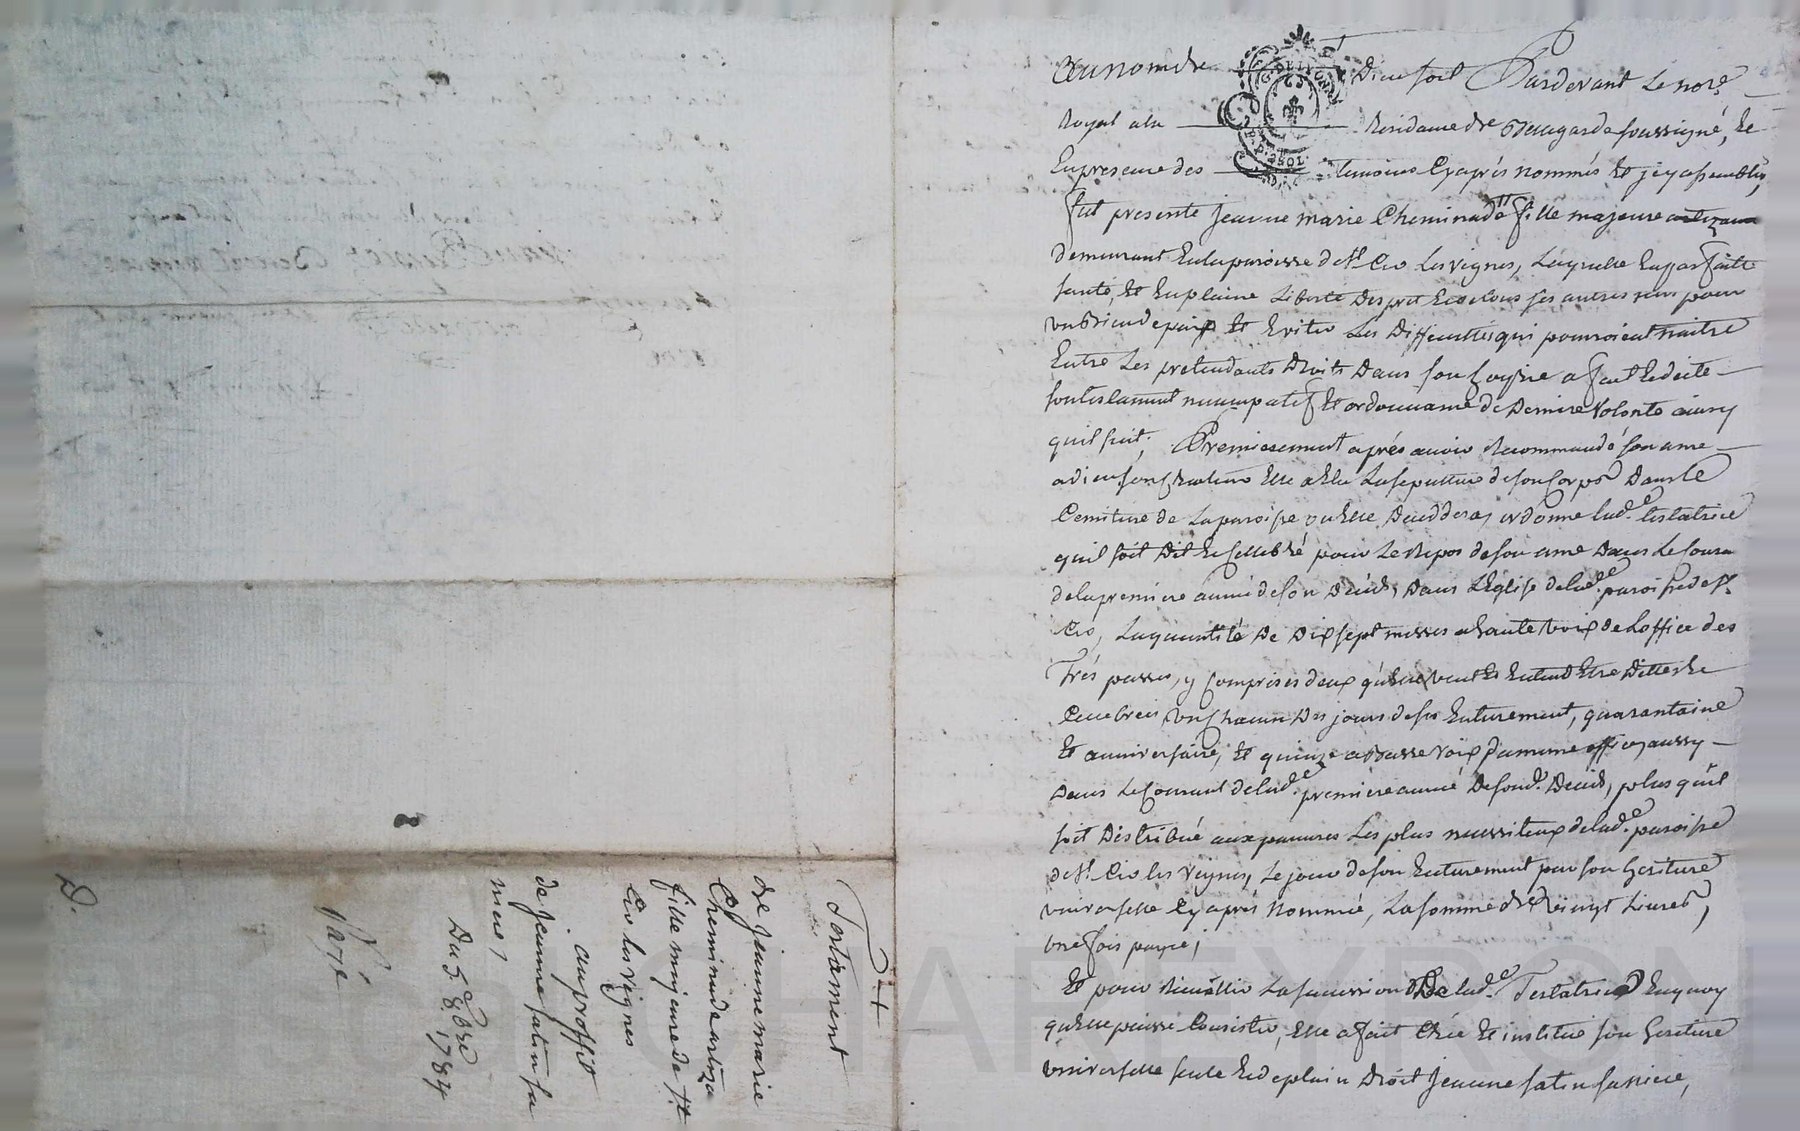 Au nom de Dieu soit Pardevant Le nore
Royal a la Residance de Beaugarde soussigné, Et
En presence des temoins Cy après nommés Et
fut presente Jeanne marie Cheminade fille majeure
demeurant En la paroisse de st Cir Les vignes, Laquelle En parfaitte
santé, Et En plaine Liberté D'esprit Et de tous ses autres sens pour
un bien de paix Et Eviter Les Difficultés qui pourroient naitre
Entre Les pretendants Droits Dans son hoirie a fait Et dicté
son testament nuncupatif Et ordonnance de Derniere volonté ainsy
qu'il suit; Premierement après avoir Recommandé son ame
a dieu son Createur Elle a Elu La sepulture de son Corps Dans Le
Cemitiere de La paroisse ou Elle Deceddera, ordonne lad.e testatrice
qu'il soit Dit Et Cellebré pour Le Repos de son ame Dans Le Courant
de la premiere année de son Décès, Dans L'Eglise de lad.e paroisse de st
Cir, La quantité De Dix sept messes a haute voix de L'office des
Trés passés, y Comprises deux qu'Elle veut Et Entend Etre Dittes Et
Cellebrées un Chacun Des jours de ses Enterrement, quarantaine
Et anniversaire, Et quinze a Basse voix du meme office, aussy
Dans Le Courant de lad.e premiere année De sond. Décès, plus qu'il
soit Distribué aux pauvres Les plus necessiteux de lad.e paroisse
de st Cir les vignes, Le jour de son Enterrement par son heritiere
universelle Cy après Nommée, La somme de vingt Livres,
une fois payée;
Et pour Receuillir La succession De lad.e Testatrice En quoy
qu'Elle puisse Consister, Elle a fait Créé Et institué son heritiere
universelle seule Et de plain Droit Jeanne fatin sa niece,
Testament
de Jeanne marie
Cheminade artiza
fille majeure de st
Cir les vignes
au proffit
de Jeanne fatin sa
niece,
Du 5e 8bre 1784
D.
CHAREYRON